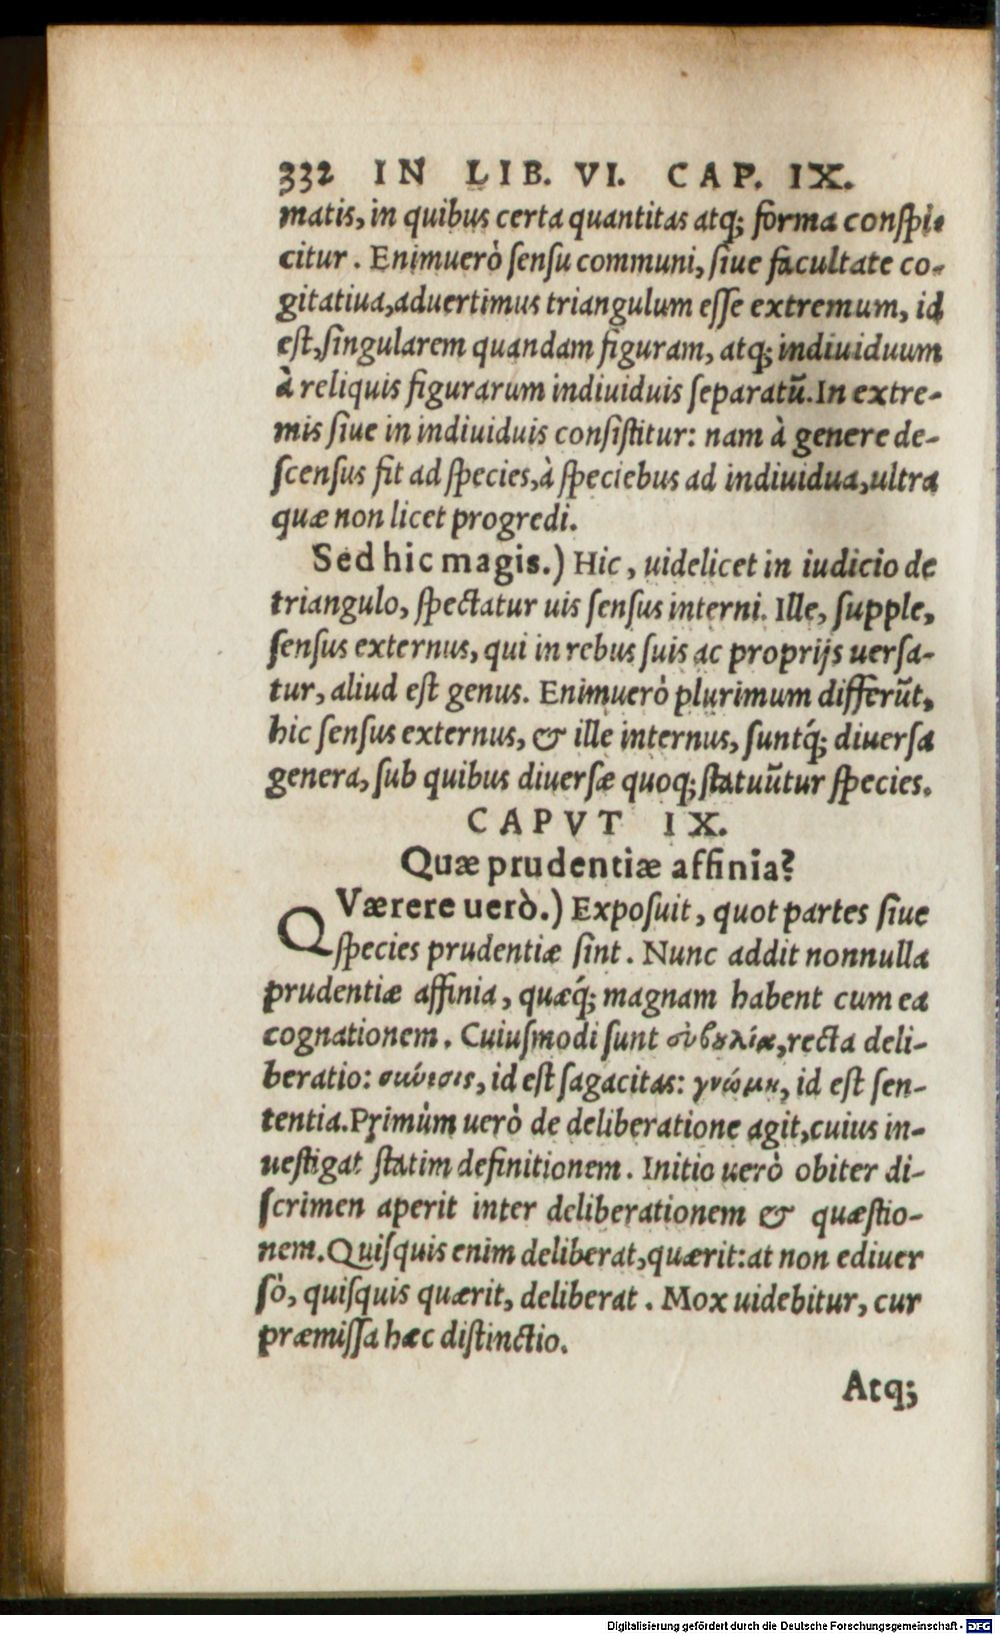 332 IN LIB. VI. CAP. IX.
matis, in quibus certa quantitas atq; forma conſpi-
citur. Enimuerò ſenſu communi, ſiue facultate co-
gitatiua, aduertimus triangulum eſſe extremum, id
eſt, ſingularem quandam figuram, atq; indiuiduum
à reliquis figurarum indiuiduis ſeparatū. In extre-
mis ſiue in indiuiduis conſiſtitur: nam à genere de-
ſcenſus fit ad ſpecies, à ſpeciebus ad indiuidua, ultra
quæ non licet progredi.
Sed hic magis.) Hic, uidelicet in iudicio de
triangulo, ſpectatur uis ſenſus interni. Ille, ſupple,
ſenſus externus, qui in rebus ſuis ac proprijs uerſa-
tur, aliud eſt genus. Enimuerò plurimum differūt,
hic ſenſus externus, & ille internus, ſuntq́; diuerſa
genera, ſub quibus diuerſæ quoq; ſtatuūtur ſpecies.
CAPVT IX.
Quæ prudentiæ affinia?
QVærere uerò.) Expoſuit, quot partes ſiue
ſpecies prudentiæ ſint. Nunc addit nonnulla
prudentiæ affinia, quæq́; magnam habent cum ea
cognationem. Cuiuſmodi ſunt εὐβȣλία, recta deli-
beratio: σύνεσις, id eſt ſagacitas: γνώμη, id eſt ſen-
tentia. Primùm uerò de deliberatione agit, cuius in-
ueſtigat ſtatim definitionem. Initio uerò obiter di-
ſcrimen aperit inter deliberationem & quæſtio-
nem. Quiſquis enim deliberat, quærit: at non ediuer
ſò, quiſquis quærit, deliberat. Mox uidebitur, cur
præmiſſa hæc diſtinctio.
Atq;
Digitalisierung gefördert durch die Deutsche Forschungsgemeinschaft - DFG